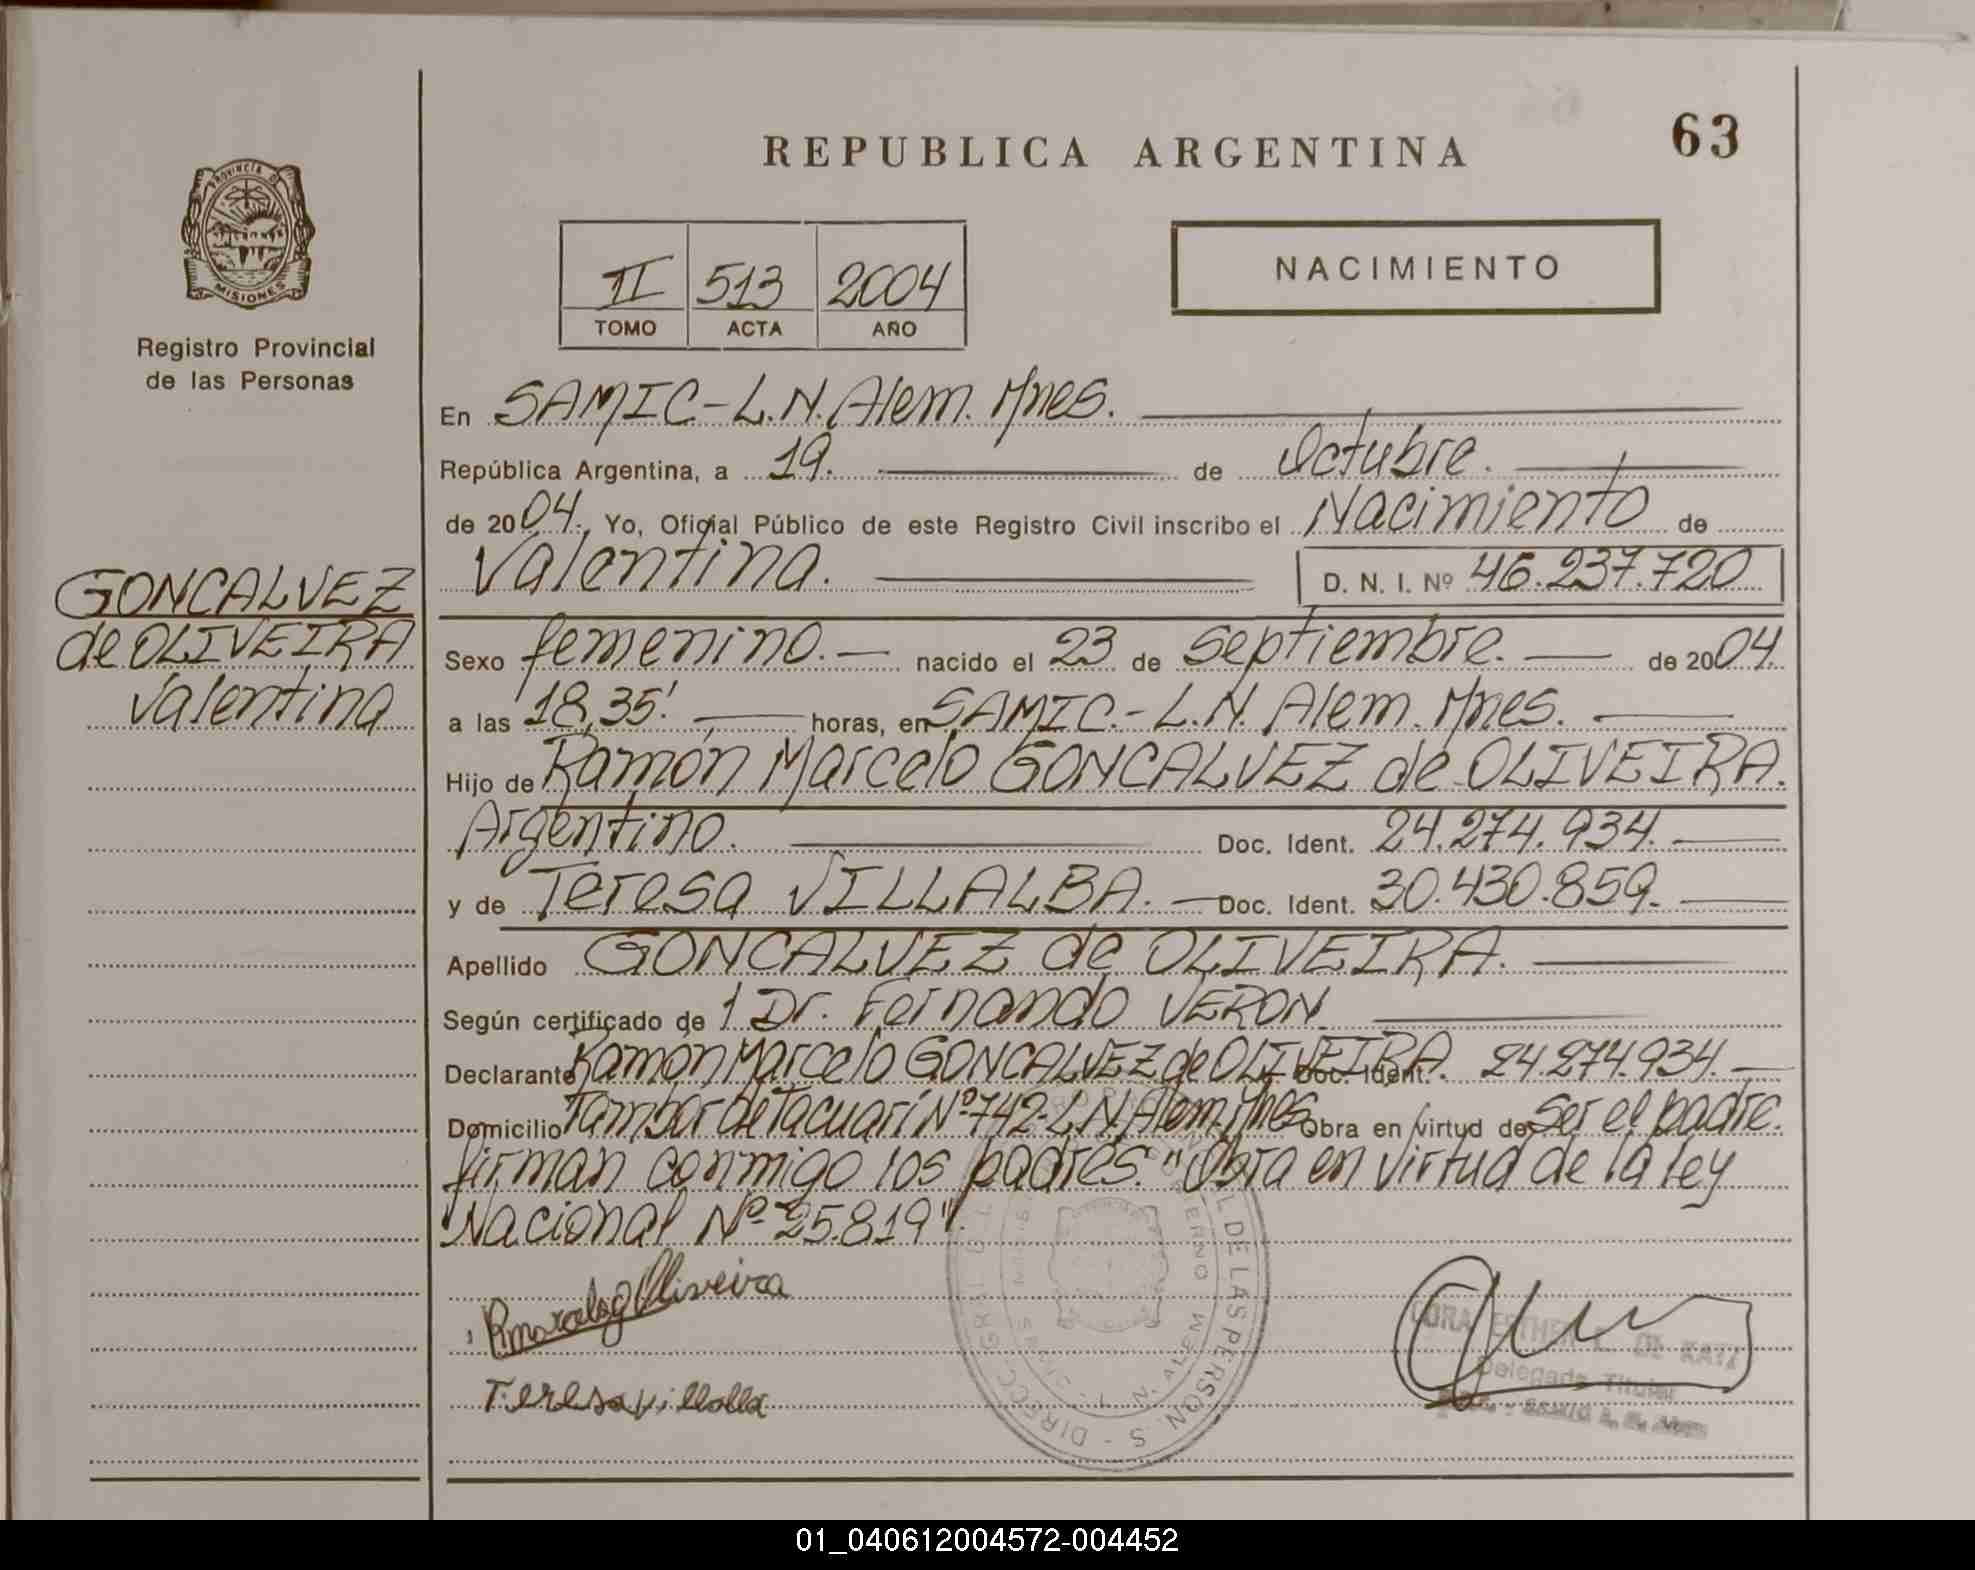 REPUBLICA ARGENTINA
63
PROVINCIA DE
MISIONES
Registro Provincial
de las Personas
II 513 2004
TOMO ACTA AÑO
NACIMIENTO
En SAMIC-L.N.Alem.Mnes.
República Argentina, a 19. de Octubre.
de 2004., Yo, Oficial Público de este Registro Civil inscribo el Nacimiento de
Valentina. D. N. I. Nº 46.237.720
GONCALVEZ
de OLIVEIRA
Valentina
Sexo femenino.- nacido el 23 de Septiembre. de 2004.
a las 18,35' horas, en SAMIC.-L.N. Alem. Mnes.
Hijo de Ramón Marcelo GONCALVEZ de OLIVEIRA.
Argentino. Doc. Ident. 24.274.934.
y de Teresa VILLALBA. Doc. Ident. 30.430.859.
Apellido GONCALVEZ de OLIVEIRA.
Según certificado de l Dr. Fernando VERON
Declarante Ramón Marcelo GONCALVEZ de OLIVEIRA. Doc. Ident. 24.274.934.
Domicilio Tambor de Tacuarí Nº 742-L.N.Alem.Mnes Obra en virtud de Ser el padre.
firman conmigo los padres. "Obra en virtud de la ley
Nacional Nº 25.819".
Oliveira
Teresa
DIRECC. GRAL DE LAS PERSONAS
L. N. ALEM
CORA ESTHER
Delegada Titular
01_040612004572-004452